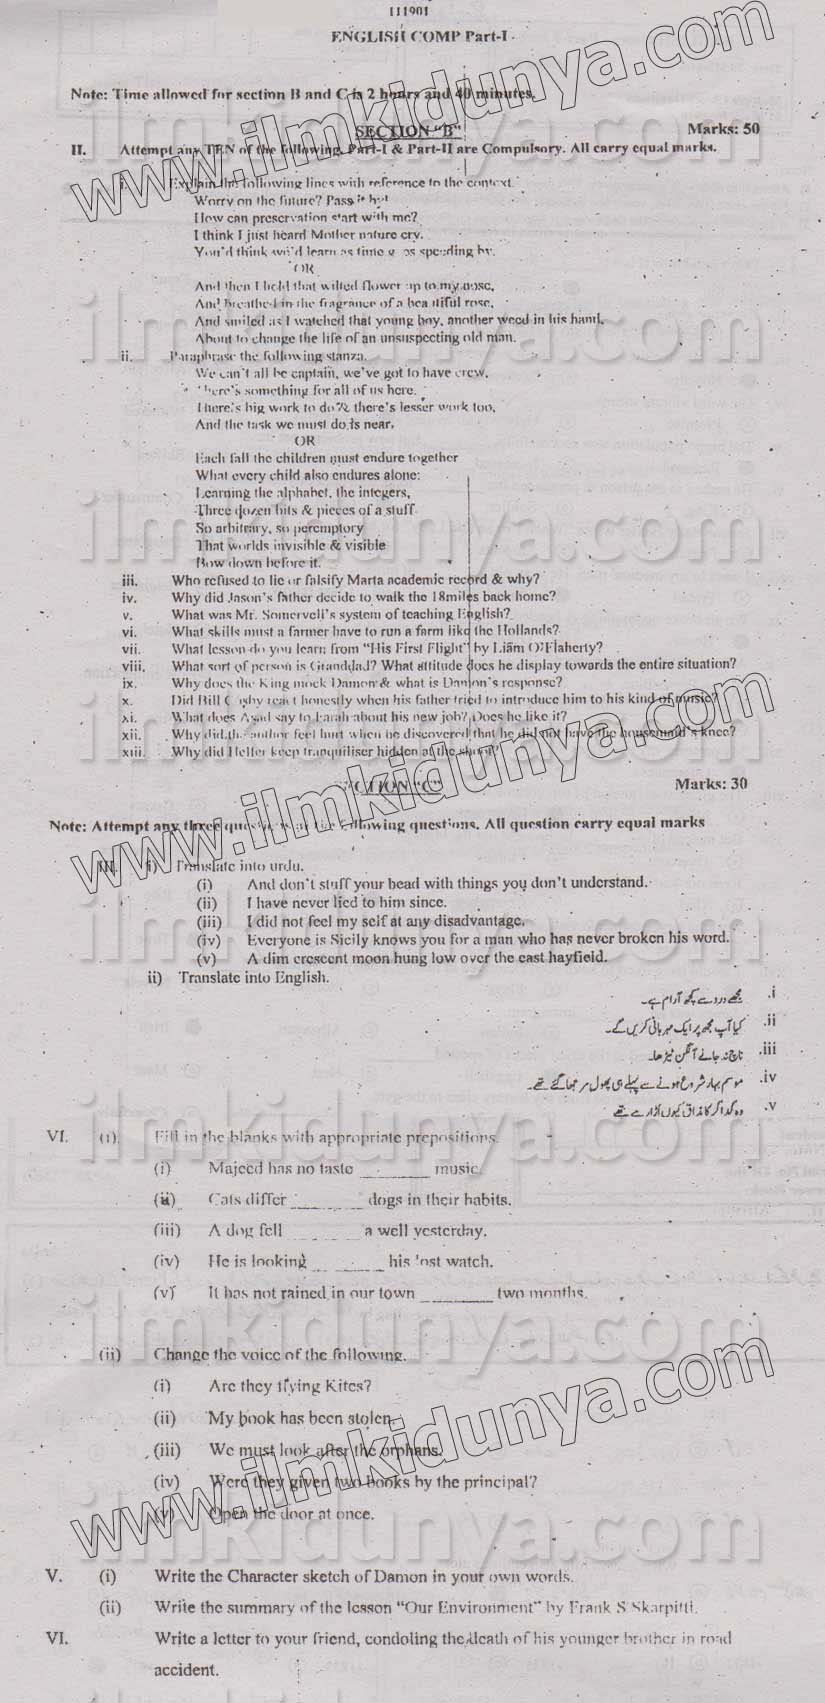 111901
ENGLISH COMP Part-I
Note: Time allowed for section B and C is 2 hours and 40 minutes.
SECTION "B" Marks: 50
II. Attempt any TEN of the following. Part-I & Part-II are Compulsory. All carry equal marks.
i. Explain the following lines with reference to the context.
Worry on the future? Pass it by!
How can preservation start with me?
I think I just heard Mother nature cry.
You'd think we'd learn as time goes speeding by.
OR
And then I held that wilted flower up to my nose,
And breathed in the fragrance of a beautiful rose,
And smiled as I watched that young boy, another weed in his hand,
About to change the life of an unsuspecting old man.
ii. Paraphrase the following stanza.
We can't all be captain, we've got to have crew,
There's something for all of us here.
There's big work to do & there's lesser work too,
And the task we must do is near.
OR
Each fall the children must endure together
What every child also endures alone:
Learning the alphabet, the integers,
Three dozen bits & pieces of a stuff
So arbitrary, so peremptory
That worlds invisible & visible
Bow down before it.
iii. Who refused to lie or falsify Marta academic record & why?
iv. Why did Jason's father decide to walk the 18miles back home?
v. What was Mr. Somervell's system of teaching English?
vi. What skills must a farmer have to run a farm like the Hollands?
vii. What lesson do you learn from "His First Flight" by Liam O'Flaherty?
viii. What sort of person is Granddad? What attitude does he display towards the entire situation?
ix. Why does the King mock Damon & what is Damon's response?
x. Did Bill Cosby react honestly when his father tried to introduce him to his kind of music?
xi. What does Asad say to Farah about his new job? Does he like it?
xii. Why did the author feel hurt when he discovered that he did not have the housemaid's knee?
xiii. Why did Helfer keep tranquiliser hidden at the shoot?
SECTION "C" Marks: 30
Note: Attempt any three questions of the following questions. All question carry equal marks
III. i) Translate into urdu.
(i) And don't stuff your head with things you don't understand.
(ii) I have never lied to him since.
(iii) I did not feel my self at any disadvantage.
(iv) Everyone is Sicily knows you for a man who has never broken his word.
(v) A dim crescent moon hung low over the east hayfield.
ii) Translate into English.
i. مجھے درد سے کچھ آرام ہے۔
ii. کیا آپ مجھ پر ایک مہربانی کریں گے۔
iii. ناچ نہ جانے آنگن ٹیڑھا۔
iv. موسم بہار شروع ہونے سے پہلے ہی پھول مرجھا گئے تھے۔
v. وہ گداگر کا مذاق کیوں اڑا رہے تھے
VI. (i) Fill in the blanks with appropriate prepositions.
(i) Majeed has no taste ________ music.
(ii) Cats differ ________ dogs in their habits.
(iii) A dog fell ________ a well yesterday.
(iv) He is looking ________ his lost watch.
(v) It has not rained in our town ________ two months.
(ii) Change the voice of the following.
(i) Are they flying Kites?
(ii) My book has been stolen.
(iii) We must look after the orphans.
(iv) Were they given two books by the principal?
(v) Open the door at once.
V. (i) Write the Character sketch of Damon in your own words.
(ii) Write the summary of the lesson "Our Environment" by Frank S Skarpitti.
VI. Write a letter to your friend, condoling the death of his younger brother in road
accident.
www.ilmkidunya.com
ilmkidunya.com
ilmkidunya.com
www.ilmkidunya.com
ilmkidunya.com
ilmkidunya.com
ilmkidunya.com
www.ilmkidunya.com
ilmkidunya.com